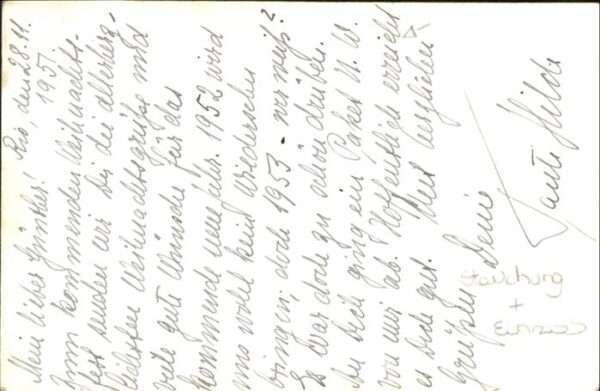 Mein lieber Günther! Rio, den 28.11.
1951
Zum kommenden Weihnachts-
fest senden wir Dir die allerherz-
lichsten Weihnachtsgrüße und
viele gute Wünsche für das
kommende neue Jahr. 1952 wird
uns wohl kein Wiedersehn
bringen, doch 1953 - wer weiß?
Es war doch zu schön drüben.
An Dich ging ein Paket N.W.
von mir ab. Hoffentlich erreicht
es Dich gut. Mit herzlichen
Grüßen Deine
Tante Hilde
+